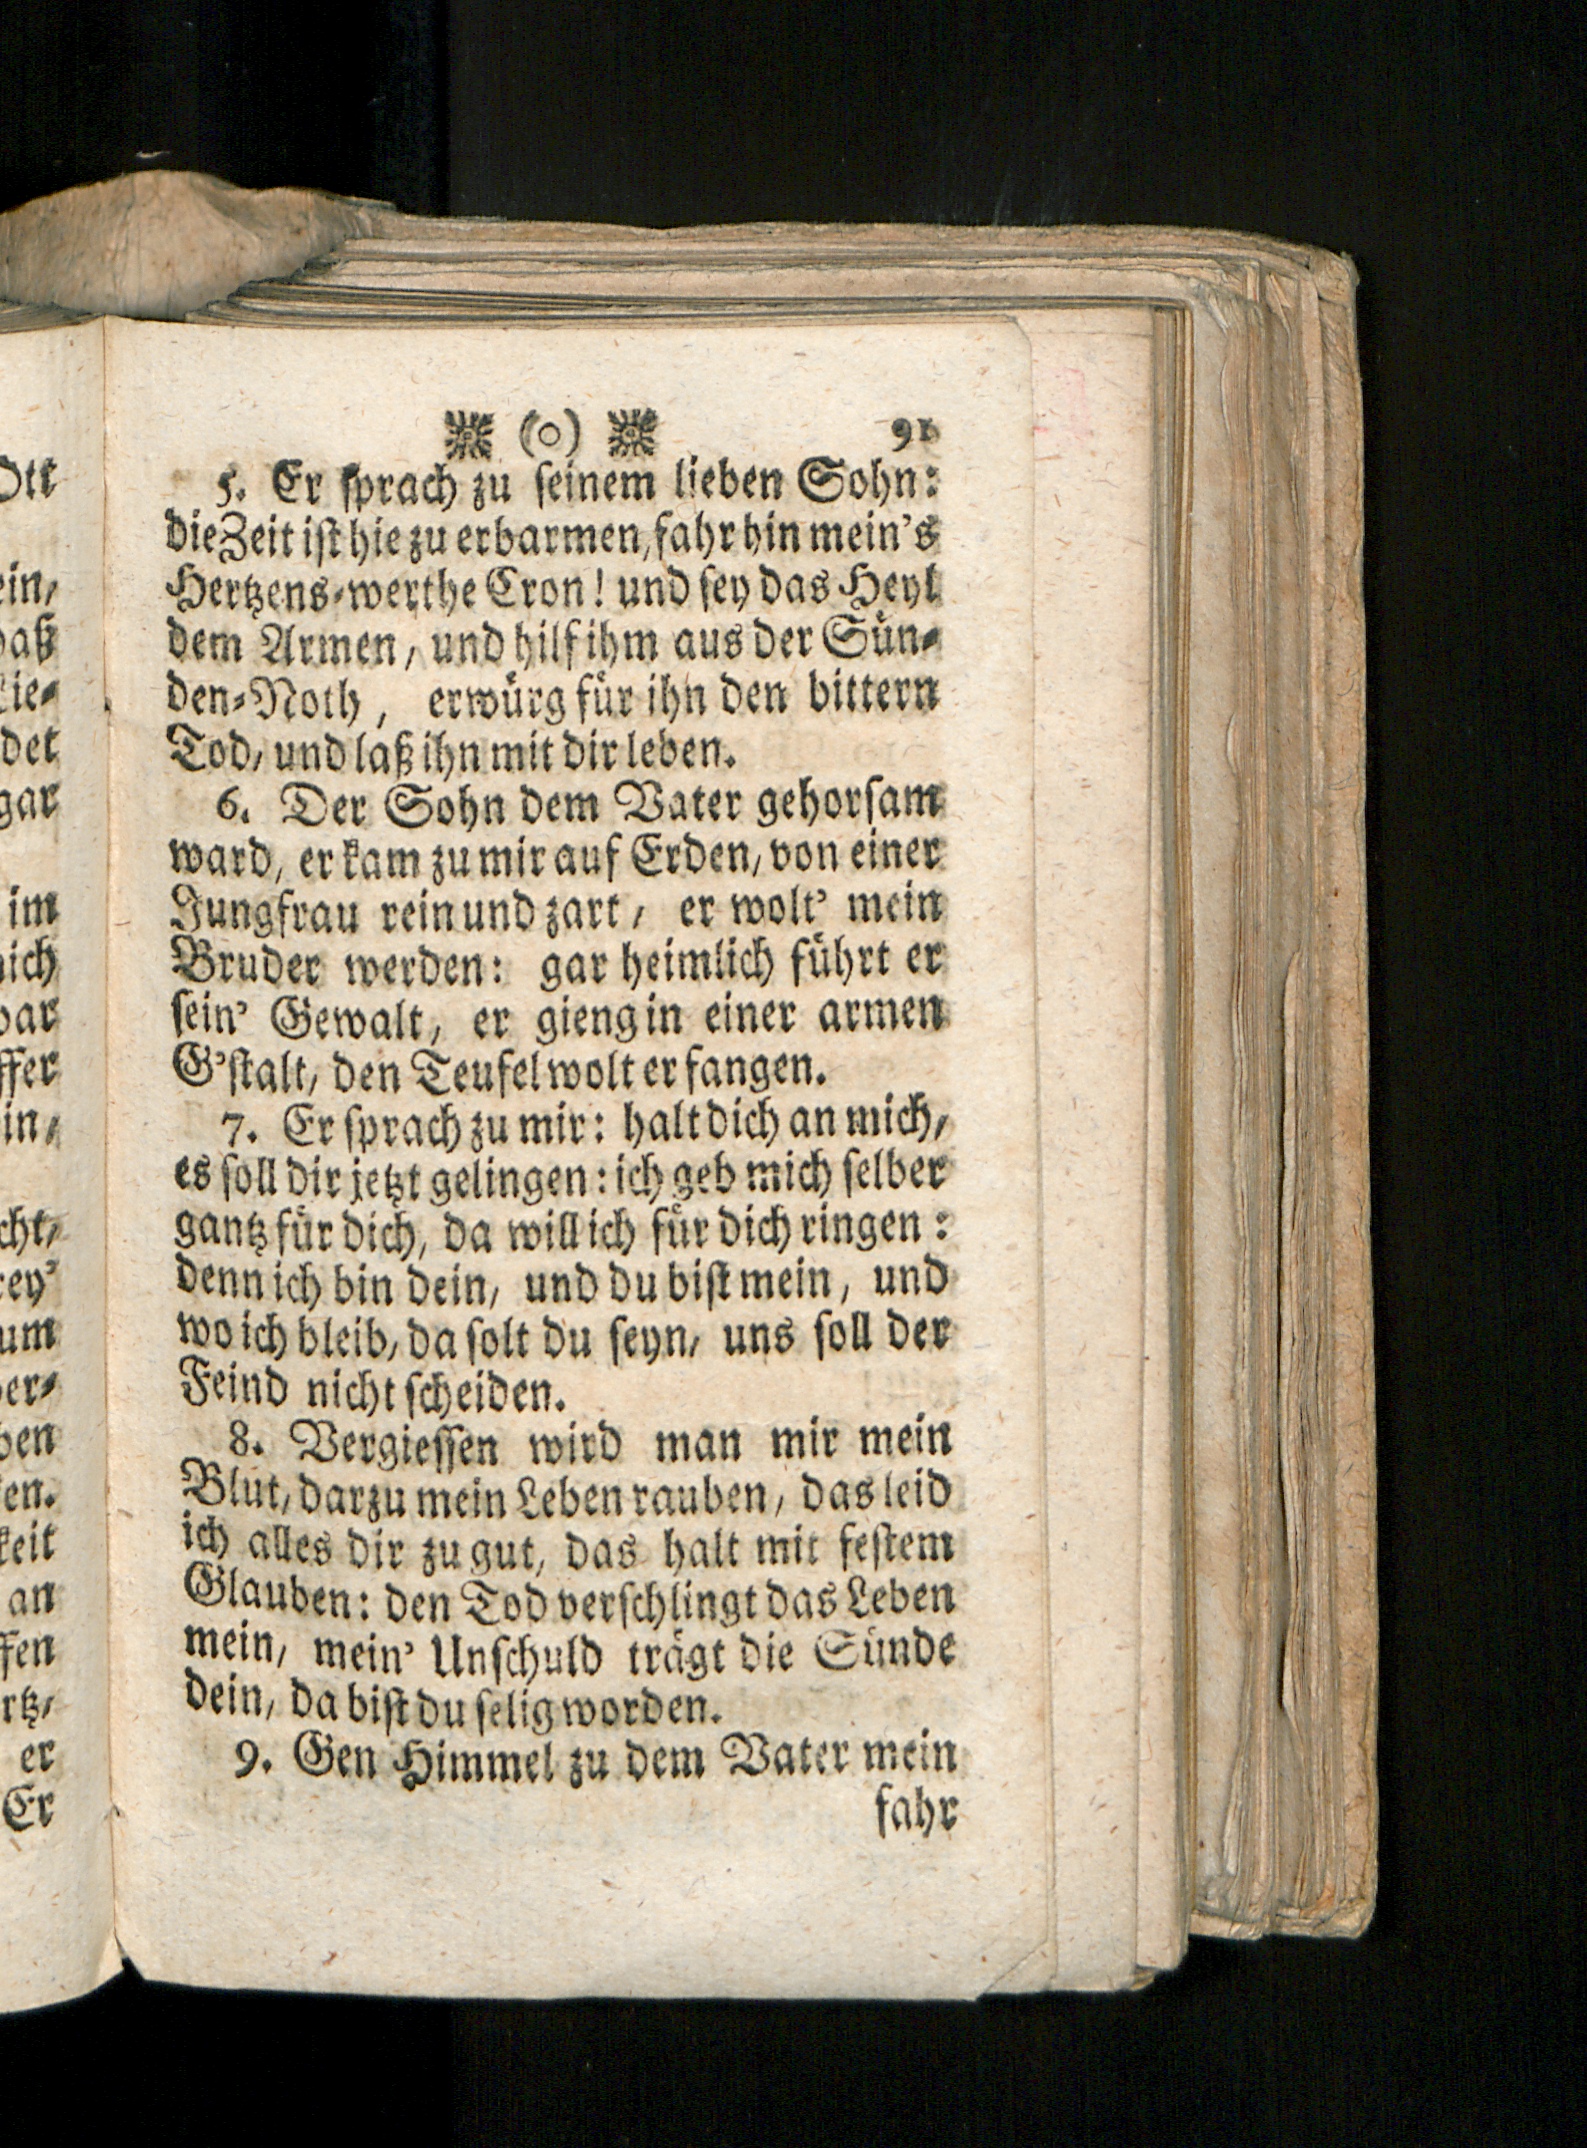 (o) 91
5. Er sprach zu seinem lieben Sohn:
die Zeit ist hie zu erbarmen, fahr hin mein's
Hertzens-werthe Cron! und sey das Heyl
dem Armen, und hilf ihm aus der Sün-
den-Noth, erwürg für ihn den bittern
Tod, und laß ihn mit dir leben.
6. Der Sohn dem Vater gehorsam
ward, er kam zu mir auf Erden, von einer
Jungfrau rein und zart, er wolt' mein
Bruder werden: gar heimlich führt er
sein' Gewalt, er gieng in einer armen
G'stalt, den Teufel wolt er fangen.
7. Er sprach zu mir: halt dich an mich,
es soll dir jetzt gelingen: ich geb mich selber
gantz für dich, da will ich für dich ringen:
denn ich bin dein, und du bist mein, und
wo ich bleib, da solt du seyn, uns soll der
Feind nicht scheiden.
8. Vergiessen wird man mir mein
Blut, darzu mein Leben rauben, das leid
ich alles dir zu gut, das halt mit festem
Glauben: den Tod verschlingt das Leben
mein, mein' Unschuld trägt die Sünde
dein, da bist du selig worden.
9. Gen Himmel zu dem Vater mein
fahr